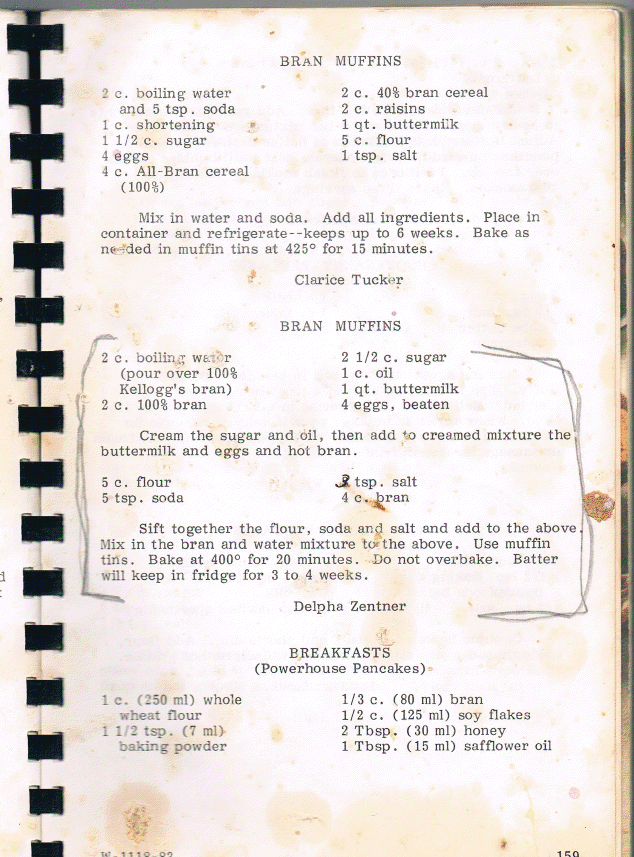 BRAN MUFFINS
2 c. boiling water
and 5 tsp. soda
1 c. shortening
1 1/2 c. sugar
4 eggs
4 c. All-Bran cereal
(100%)
2 c. 40% bran cereal
2 c. raisins
1 qt. buttermilk
5 c. flour
1 tsp. salt
Mix in water and soda. Add all ingredients. Place in
container and refrigerate--keeps up to 6 weeks. Bake as
needed in muffin tins at 425° for 15 minutes.
Clarice Tucker
BRAN MUFFINS
2 c. boiling water
(pour over 100%
Kellogg's bran)
2 c. 100% bran
2 1/2 c. sugar
1 c. oil
1 qt. buttermilk
4 eggs, beaten
Cream the sugar and oil, then add to creamed mixture the
buttermilk and eggs and hot bran.
5 c. flour
5 tsp. soda
tsp. salt
4 c. bran
Sift together the flour, soda and salt and add to the above.
Mix in the bran and water mixture to the above. Use muffin
tins. Bake at 400° for 20 minutes. Do not overbake. Batter
will keep in fridge for 3 to 4 weeks.
Delpha Zentner
BREAKFASTS
(Powerhouse Pancakes)
1 c. (250 ml) whole
wheat flour
1 1/2 tsp. (7 ml)
baking powder
1/3 c. (80 ml) bran
1/2 c. (125 ml) soy flakes
2 Tbsp. (30 ml) honey
1 Tbsp. (15 ml) safflower oil
W-1118-82
159